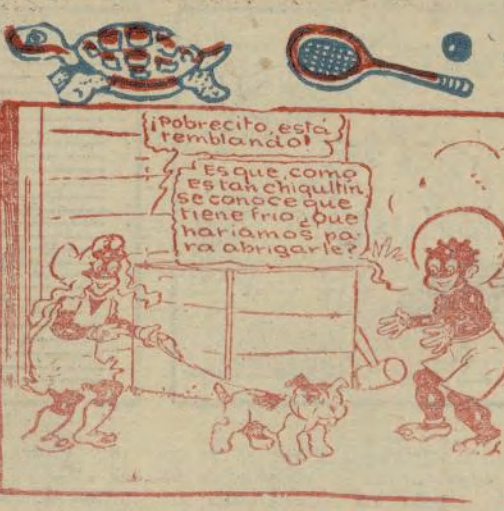 ¡Pobrecito, está
temblando!
Es que, como
es tan chiquitin
se conoce que
tiene frio ¿Que
hariamos pa-
ra abrigarle?